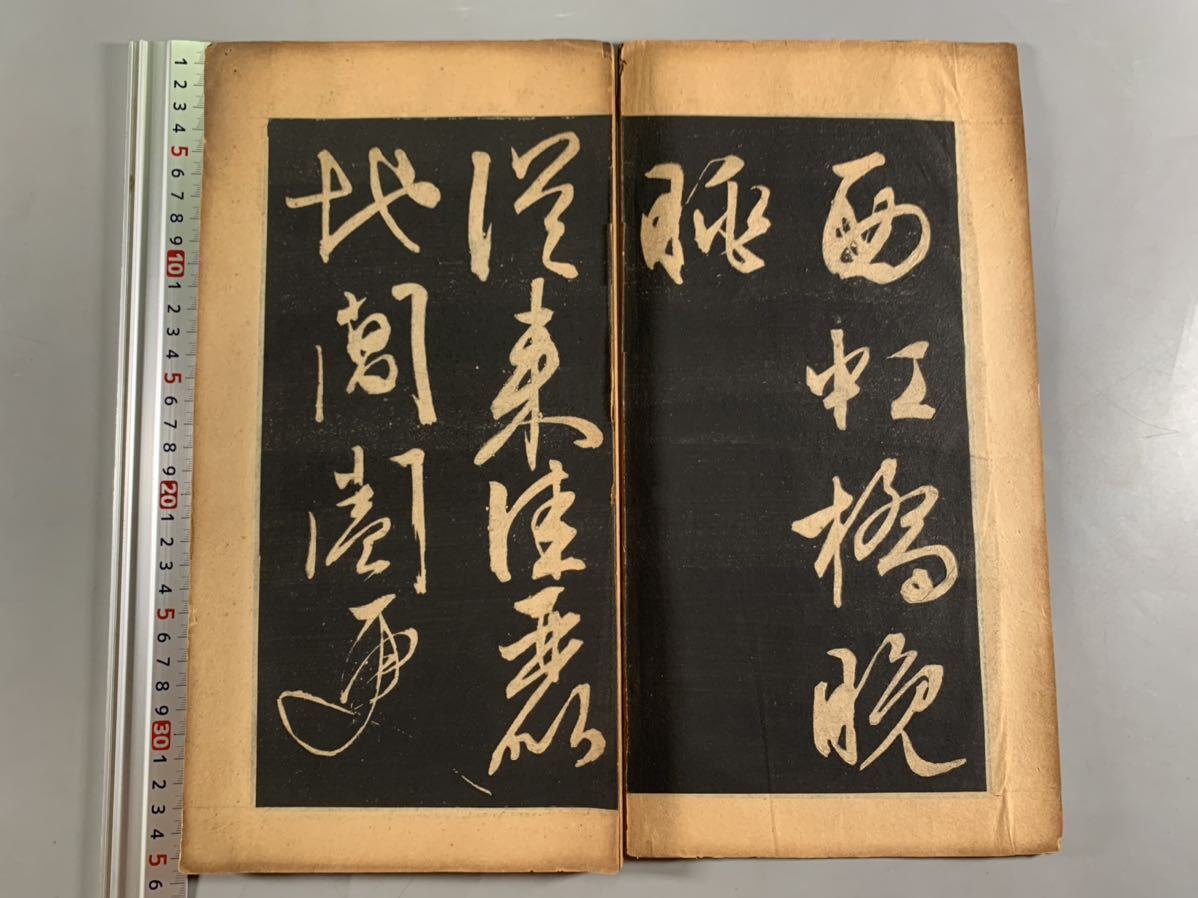 西虹橋晚
眺
從來佳麗
地閶闔
1 2 3 4 5 6 7 8 9 10 1 2 3 4 5 6 7 8 9 20 1 2 3 4 5 6 7 8 9 30 1 2 3 4 5 6